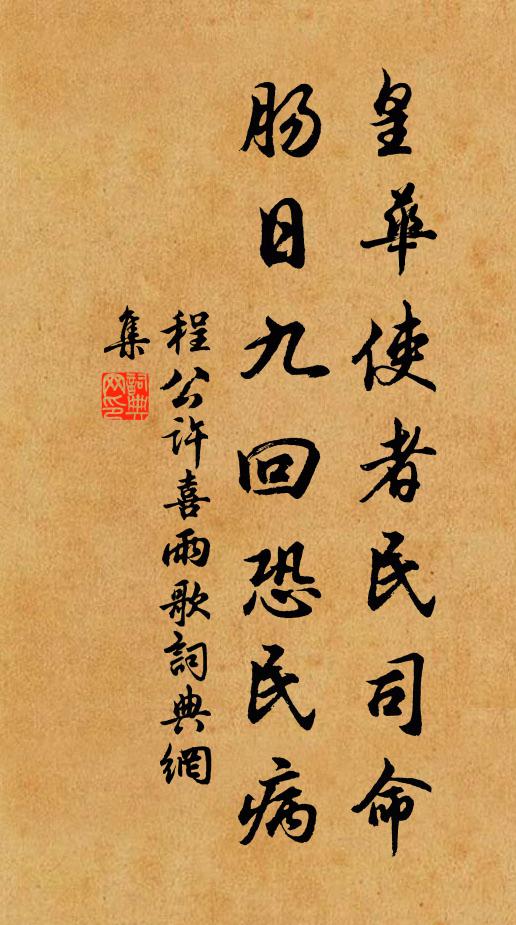 皇華使者民司命
肠日九回恐民病
程公許喜雨歌詞典網
集
詞典
网印